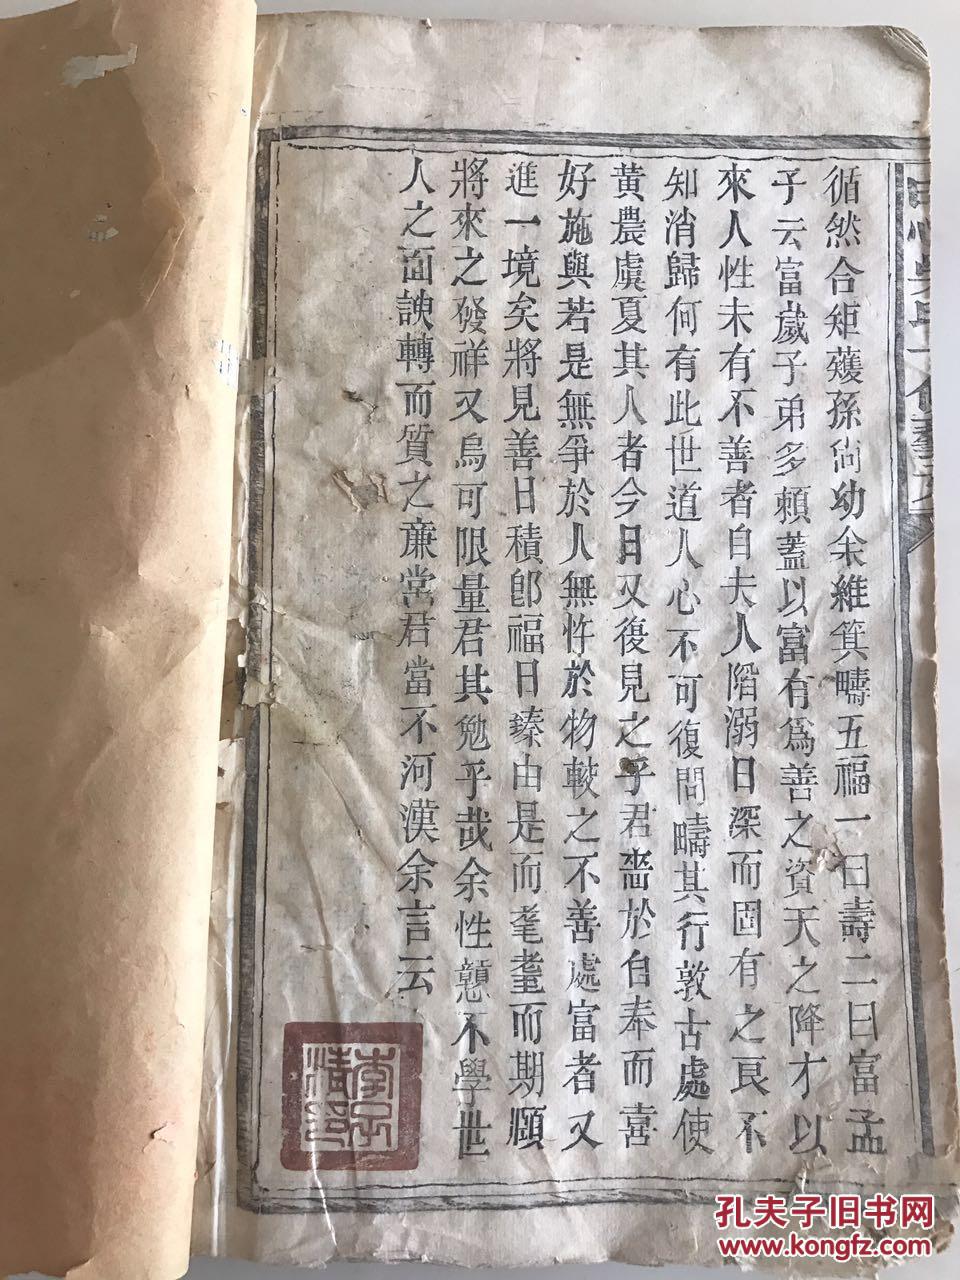 循然合矩蒦孫尙幼余維箕疇五福一曰壽二曰富孟
子云富歲子弟多賴蓋以富有爲善之資天之降才以
來人性未有不善者自夫人陷溺日深而固有之良不
知消歸何有此世道人心不可復問疇其行敦古處使
黃農虞夏其人者今日又復見之乎君嗇於自奉而喜
好施與若是無爭於人無忤於物較之不善處富者又
進一境矣將見善日積卽福日臻由是而耄耋而期頤
將來之發祥又烏可限量君其勉乎哉余性戇不學世
人之面諛轉而質之亷當君當不河漢余言云
孔夫子旧书网
www.kongfz.com